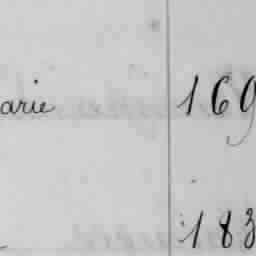 arie 169
183